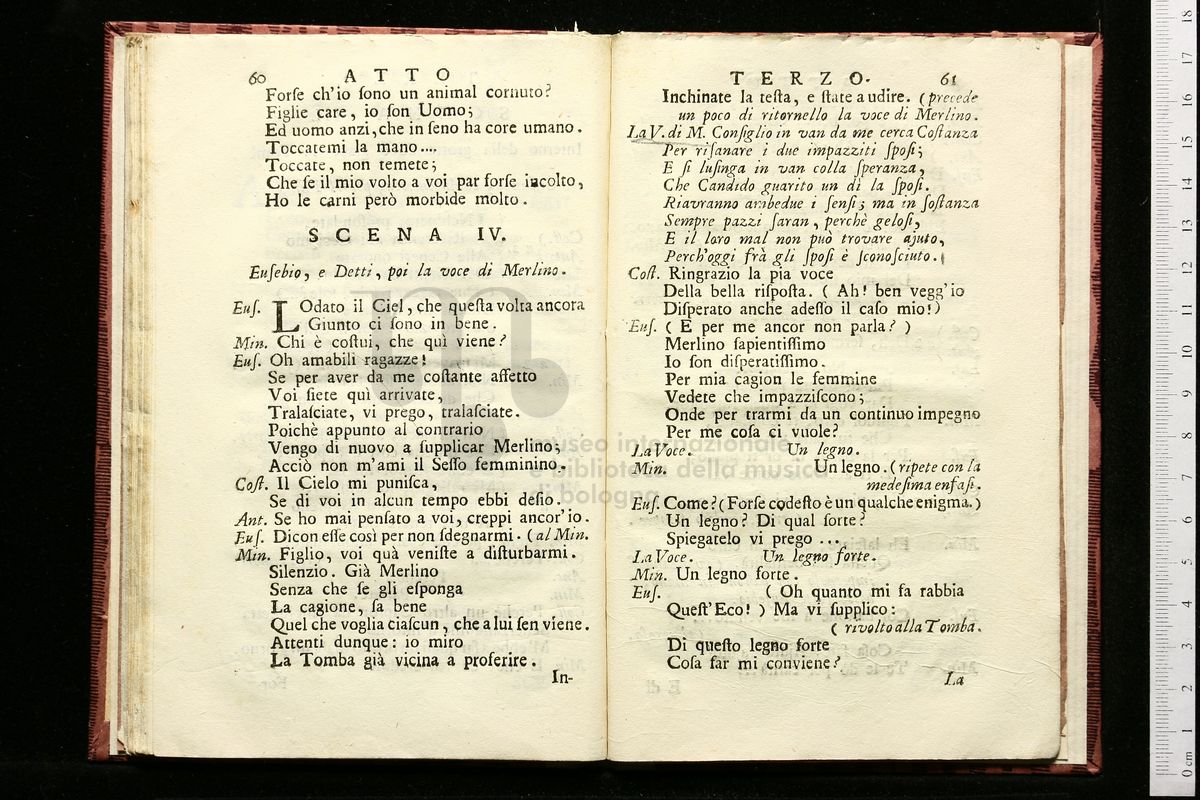 60 ATTO
Forſe ch'io ſono un animal cornuto?
Figlie care, io ſon Uomo;
Ed uomo anzi, che in ſeno ha core umano.
Toccatemi la mano....
Toccate, non temete;
Che ſe il mio volto a voi par forſe incolto,
Ho le carni però morbide molto.
SCENA IV.
Euſebio, e Detti, poi la voce di Merlino.
Euſ. LOdato il Ciel, che queſta volta ancora
Giunto ci ſono in bene.
Min. Chi è coſtui, che quì viene?
Euſ. Oh amabili ragazze!
Se per aver da me coſtante affetto
Voi ſiete quì arrivate,
Tralaſciate, vi prego, tralaſciate.
Poichè appunto al contrario
Vengo di nuovo a ſupplicar Merlino;
Acciò non m'ami il Seſſo femminino.
Coſt. Il Cielo mi puniſca,
Se di voi in alcun tempo ebbi deſio.
Ant. Se ho mai penſato a voi, creppi ancor'io.
Euſ. Dicon eſſe così per non ſdegnarmi. (al Min.
Min. Figlio, voi quà veniſte a diſturbarmi.
Silenzio. Già Merlino
Senza che ſe gli eſponga
La cagione, ſa bene
Quel che voglia ciaſcun, che a lui ſen viene.
Attenti dunque: io miro
La Tomba già vicina a proferire.
In-
TERZO. 61
Inchinate la teſta, e ſtate a udire. (precede
un poco di ritornello la voce di Merlino.
La V. di M. Conſiglio in van da me cerca Coſtanza
Per riſanare i due impazziti ſpoſi;
E ſi luſinga in van colla ſperanza,
Che Candido guarito un dì la ſpoſi.
Riavranno ambedue i ſenſi; ma in ſoſtanza
Sempre pazzi ſaran, perchè geloſi,
E il loro mal non può trovare ajuto,
Perch'oggi frà gli ſpoſi è ſconoſciuto.
Coſt. Ringrazio la pia voce
Della bella riſpoſta. (Ah! ben vegg'io
Diſperato anche adeſſo il caſo mio!)
Euſ. (E per me ancor non parla?)
Merlino ſapientiſſimo
Io ſon diſperatiſſimo.
Per mia cagion le femmine
Vedete che impazziſcono;
Onde per trarmi da un continuo impegno
Per me coſa ci vuole?
La Voce. Un legno.
Min. Un legno. (ripete con la
medeſima enfaſi.
Euſ. Come? (Forſe codeſto è un qualche enigma.)
Un legno? Di qual ſorte?
Spiegatelo vi prego ...
La Voce. Un legno forte.
Min. Un legno forte.
Euſ. (Oh quanto mi fa rabbia
Queſt'Eco!) Ma vi ſupplico:
(rivolto alla Tomba.
Di queſto legno forte
Coſa far mi conviene?
La
museo internazionale
biblioteca della musica
di bologna
0 cm 1 2 3 4 5 6 7 8 9 10 11 12 13 14 15 16 17 18